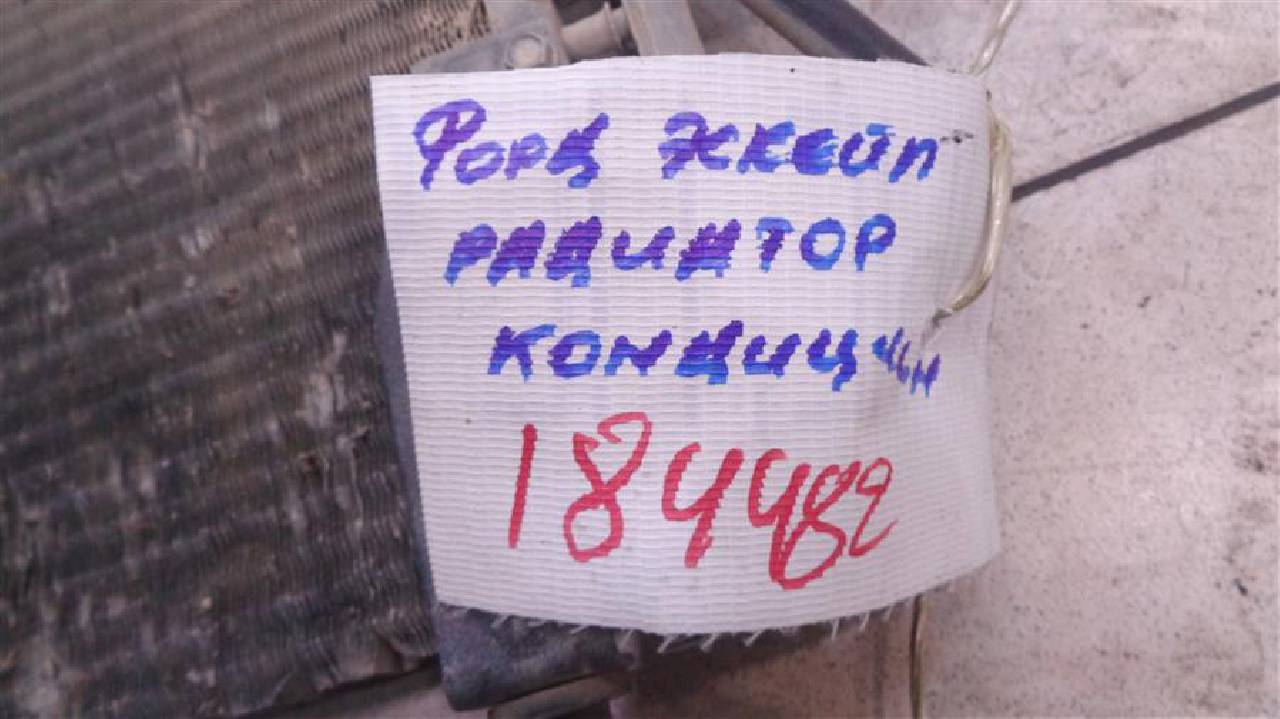 Форд Эскейп
радиатор
кондиц
184482